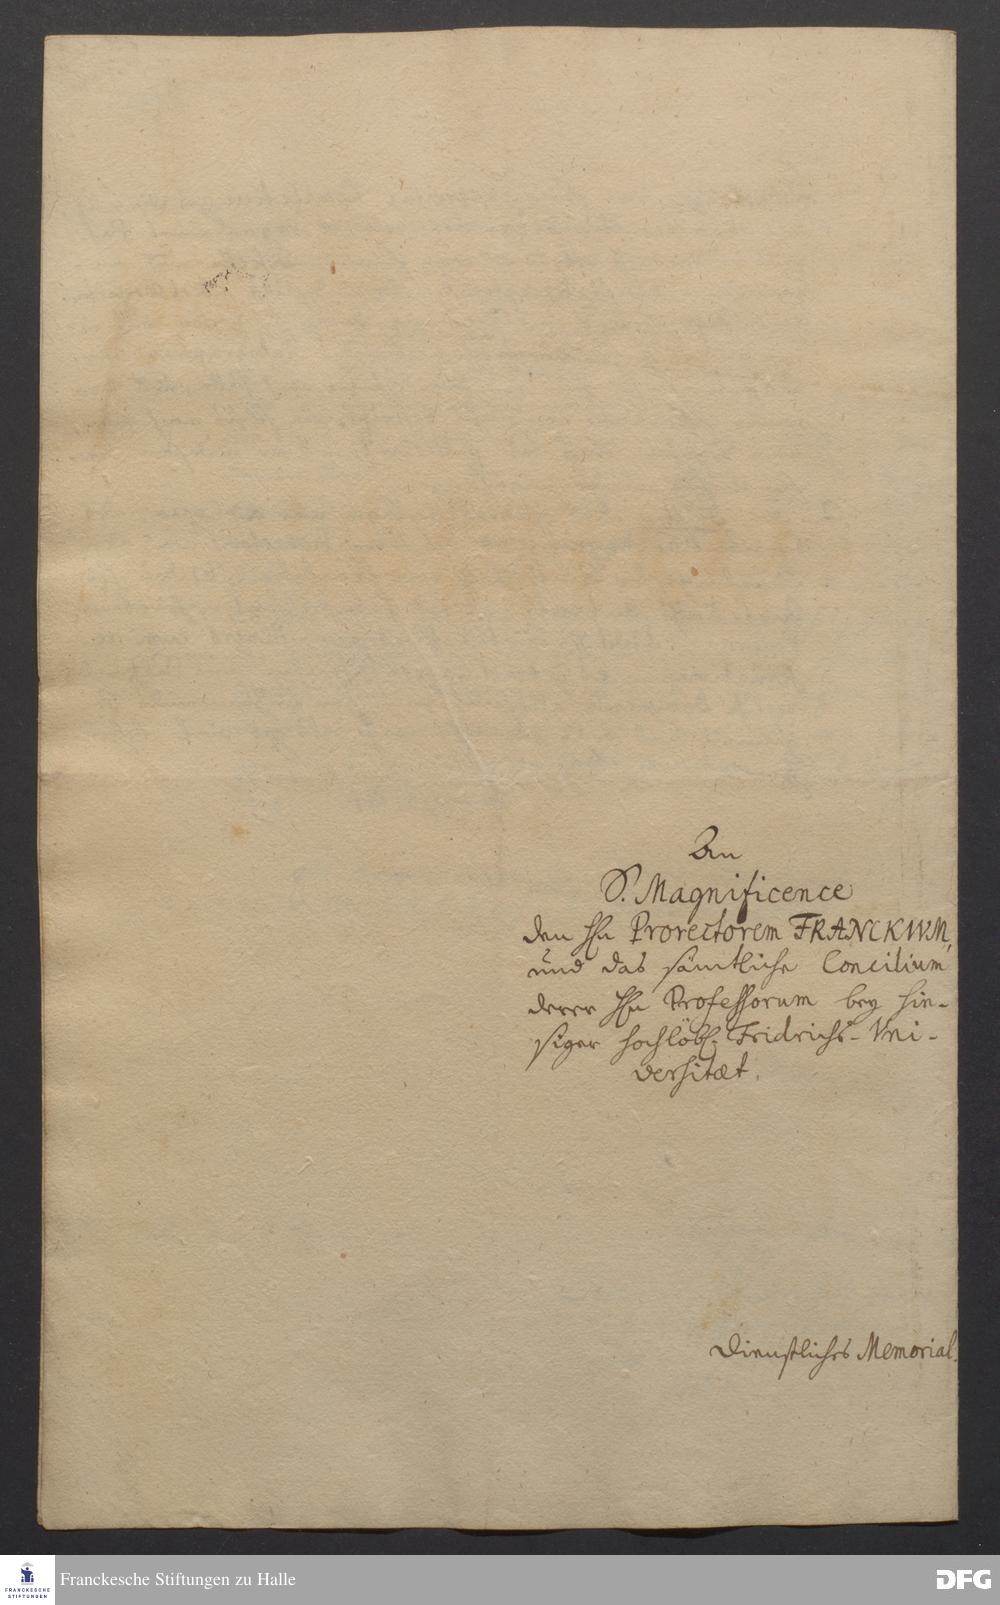 An
S. Magnificence
den Hn Prorectorem FRANCKIVM,
und das sämtliche Concilium
derer Hn Professorum bey hie-
siger hochlöbl. Fridrichs-Vni-
versitæt.
Dienstliches Memorial.
FRANCKESCHE
STIFTUNGEN
Franckesche Stiftungen zu Halle
DFG